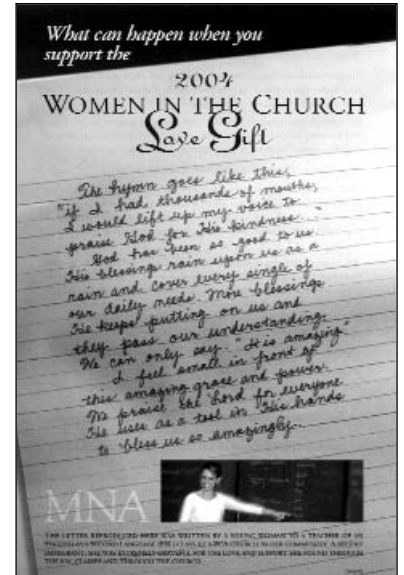 What can happen when you
support the
2004
WOMEN IN THE CHURCH
Love Gift
The hymn goes like this,
"if I had thousands of mouths,
I would lift up my voice to
praise God for His kindness."
God has been so good to us.
His blessings rain upon us as a
rain and cover every single of
our daily needs. More blessings
He keeps putting on us and
they pass our understanding.
We can only say "It is amazing"
I feel small in front of
this amazing grace and power.
We praise the Lord for everyone
He uses as a tool in His hands
to bless us so amazingly.
MNA
THE LETTER REPRODUCED HERE WAS WRITTEN BY A YOUNG WOMAN TO A TEACHER OF AN